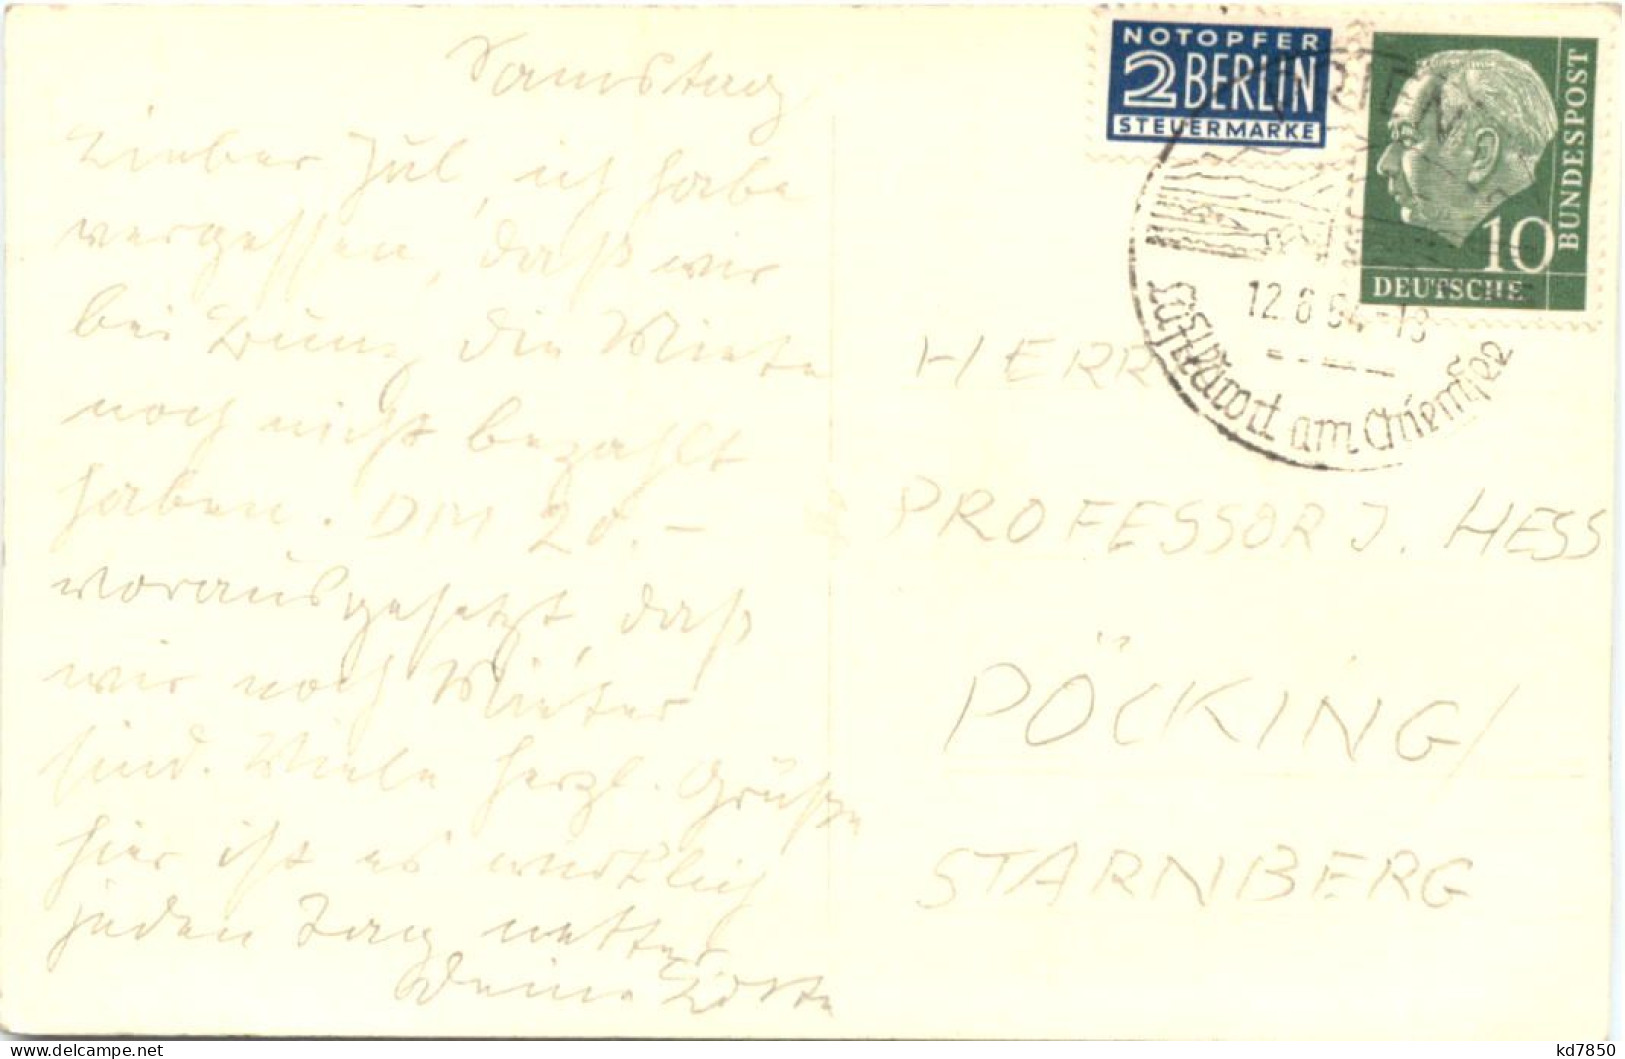 Samstag
Lieber Jul, ich habe
vergessen, daß wir
bei die Miete
noch nicht bezahlt
haben. DM 20.–
vorausgesetzt, daß
wir noch Mieter
sind. Viele herzl. Grüße
hier ist es wirklich
jeden Tag netter
Deine Lotte
NOTOPFER
2 BERLIN
STEUERMARKE
10
BUNDESPOST
DEUTSCHE
PRIEN
12.6.54-18
Luftkurort am Chiemsee
HERR
PROFESSOR J. HESS
PÖCKING/
STARNBERG
kd7850